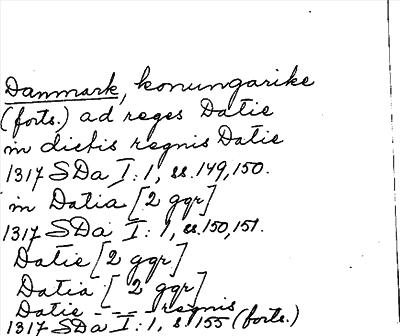 Danmark, konungarike
(forts.) ad reges Datie
in dictis regnis Datie
1317 SDa I:1, ss.149,150.
in Datia [2 ggr]
1317 SDa I:1, ss.150,151.
Datie [2 ggr]
Datia [2 ggr]
Datie - - - regnis
1317 SDa I:1, s 155 (forts.)